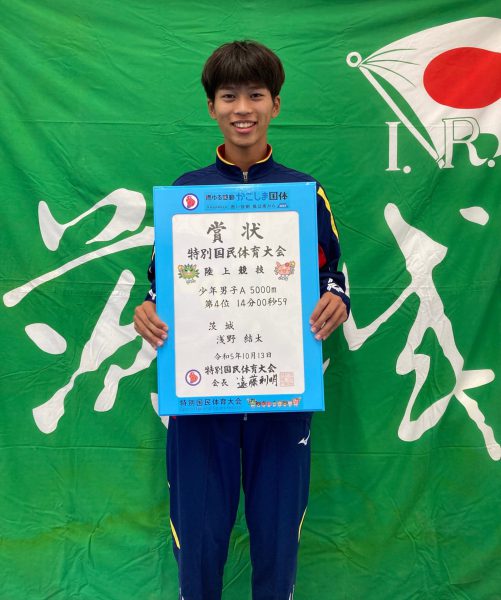 燃ゆる感動 かごしま国体
賞状
特別国民体育大会
陸上競技
少年男子A 5000m
第4位 14分00秒59
茨城
浅野 結太
令和5年10月13日
特別国民体育大会
会長 遠藤利明
特別国民体育大会
I. R.
茨城